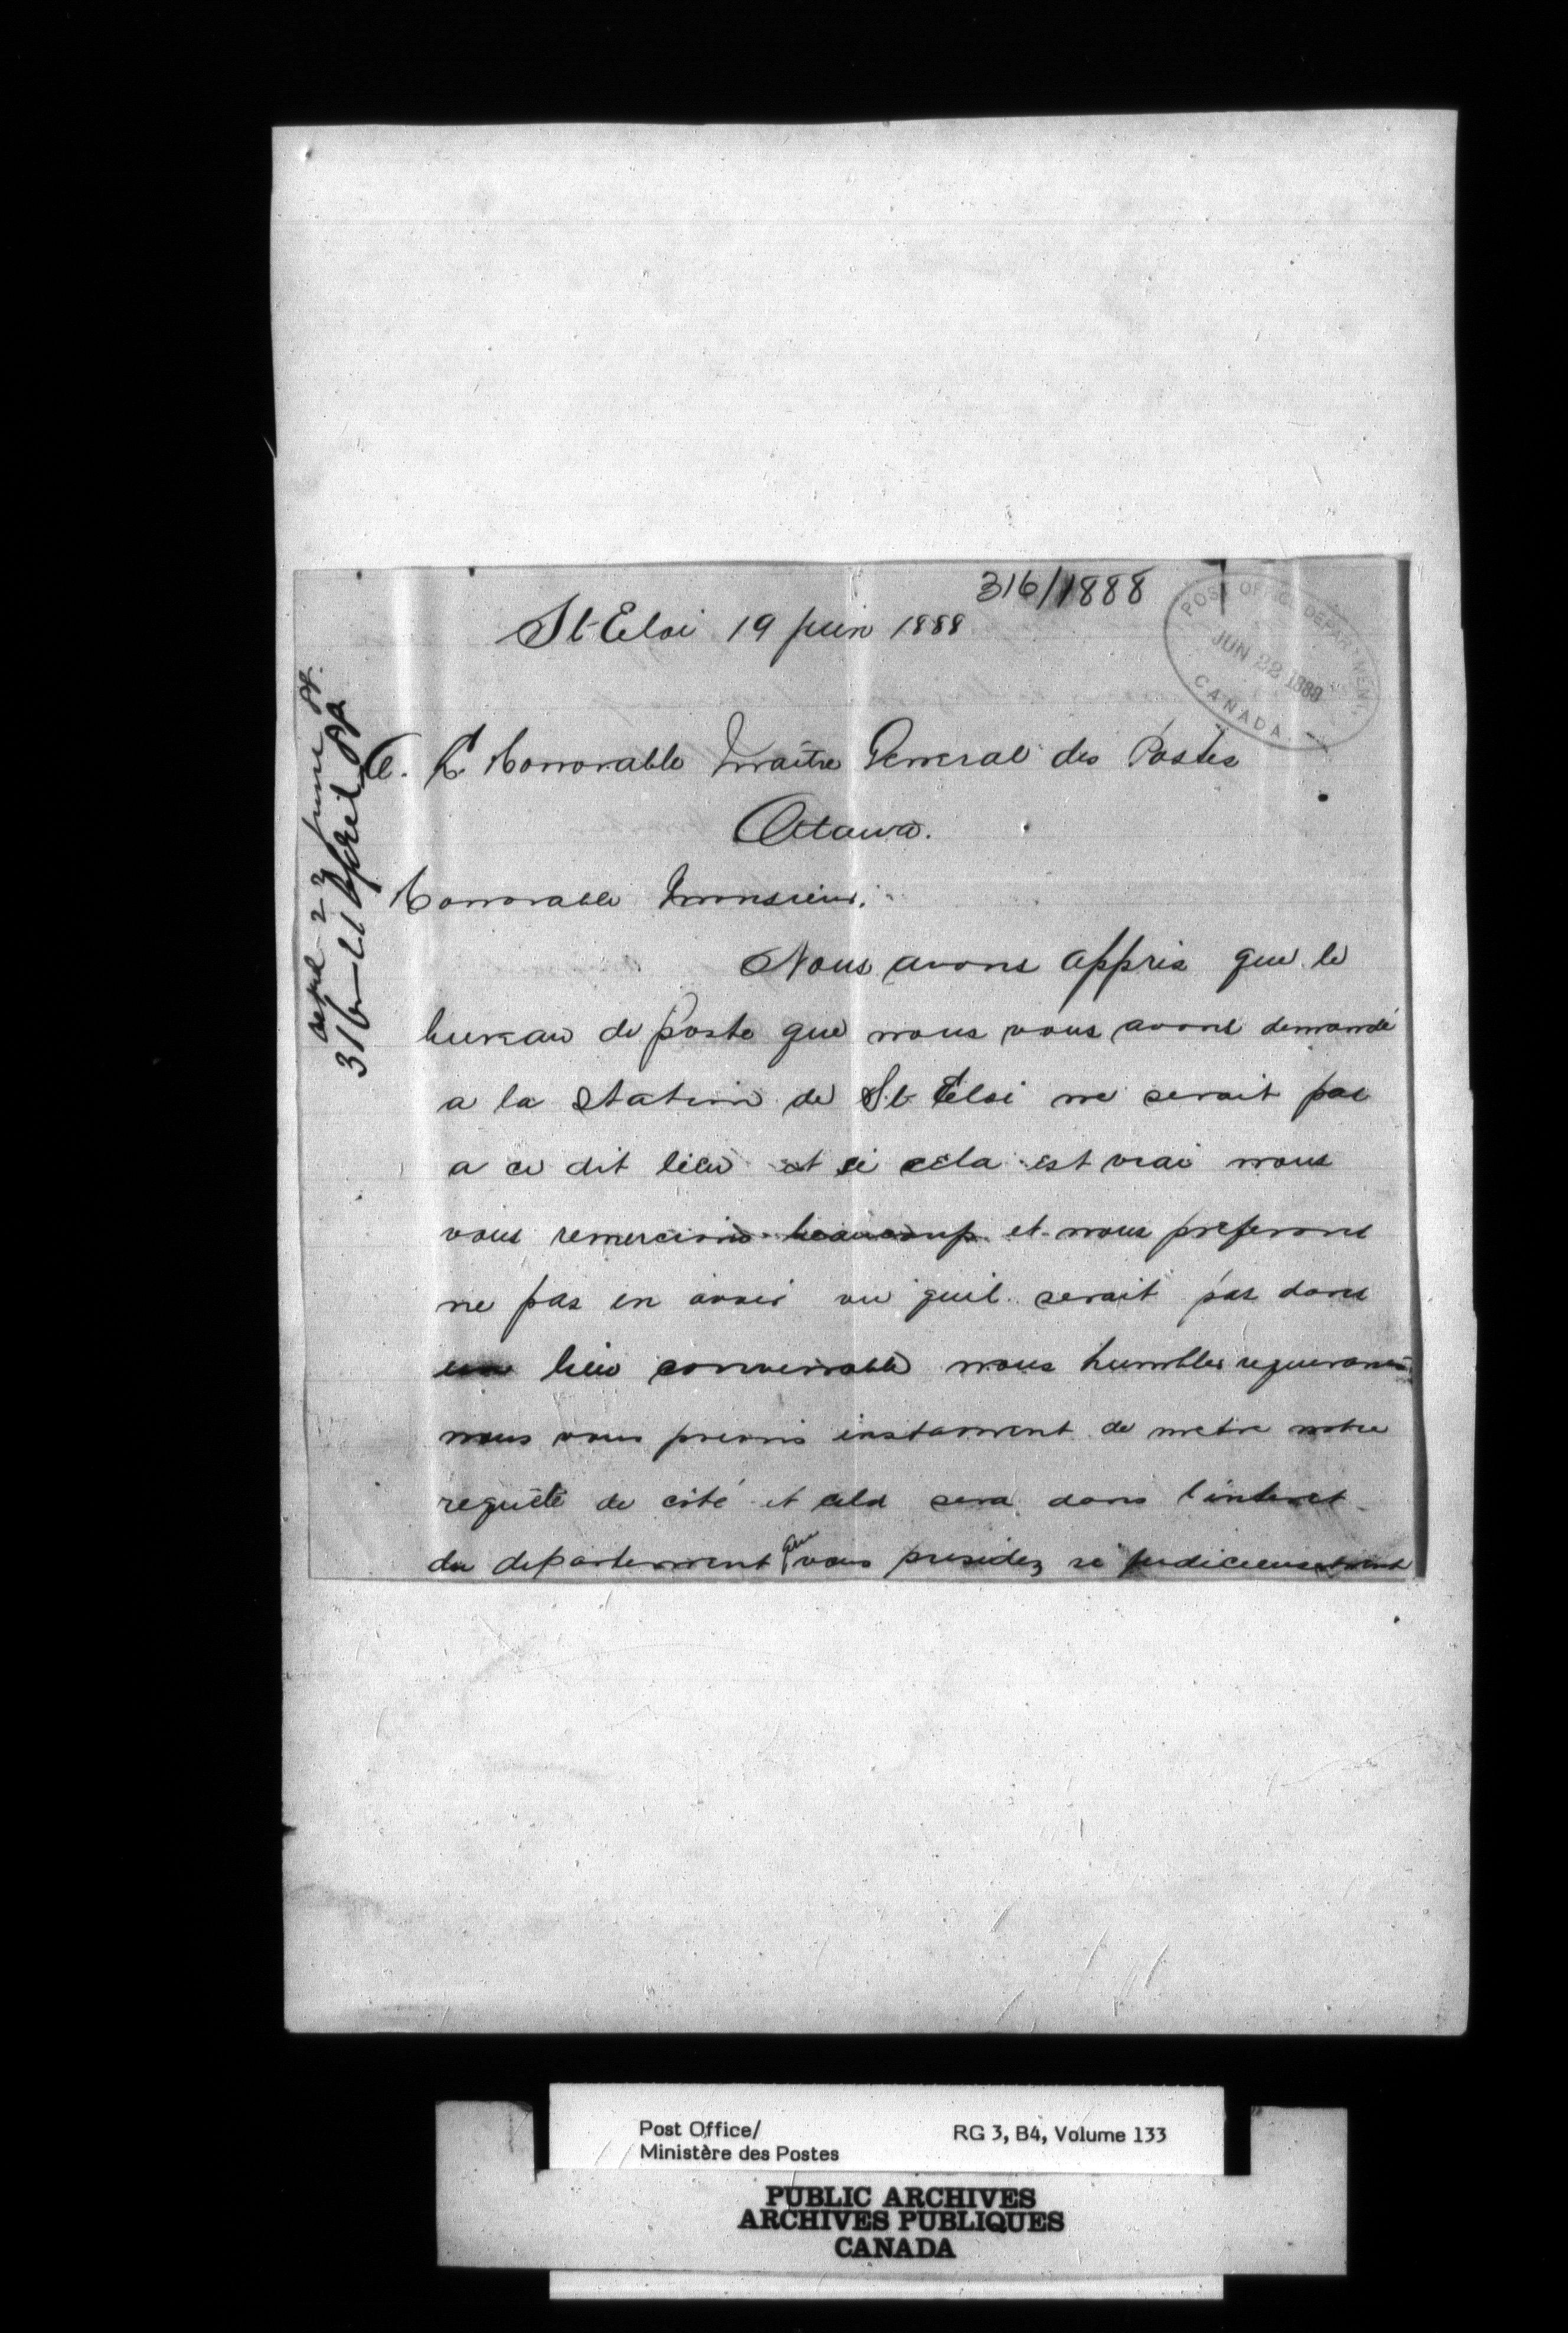 316/1888
St-Eloi 19 juin 1888
POST OFFICE DEPARTMENT.
JUN 22 1888
CANADA.
23 june
316-21 April
A. L' Honorable Maître General des Postes
Ottawa.
Honorable Monsieur.
Nous avons appris que le
bureau de poste que nous vous avons demandé
a la station de St-Eloi ne serait pas
a ce dit lieu et si cela est vrai nous
vous remercions beaucoup et nous preferons
ne pas en avoir vu quil serait pas dans
un lieu convenable nous humbles requerants
nous vous prions instament de metre notre
requête de coté et cela sera dans l'interet
du departement que vous presidez si judicieusement
Post Office/
Ministère des Postes
RG 3, B4, Volume 133
PUBLIC ARCHIVES
ARCHIVES PUBLIQUES
CANADA